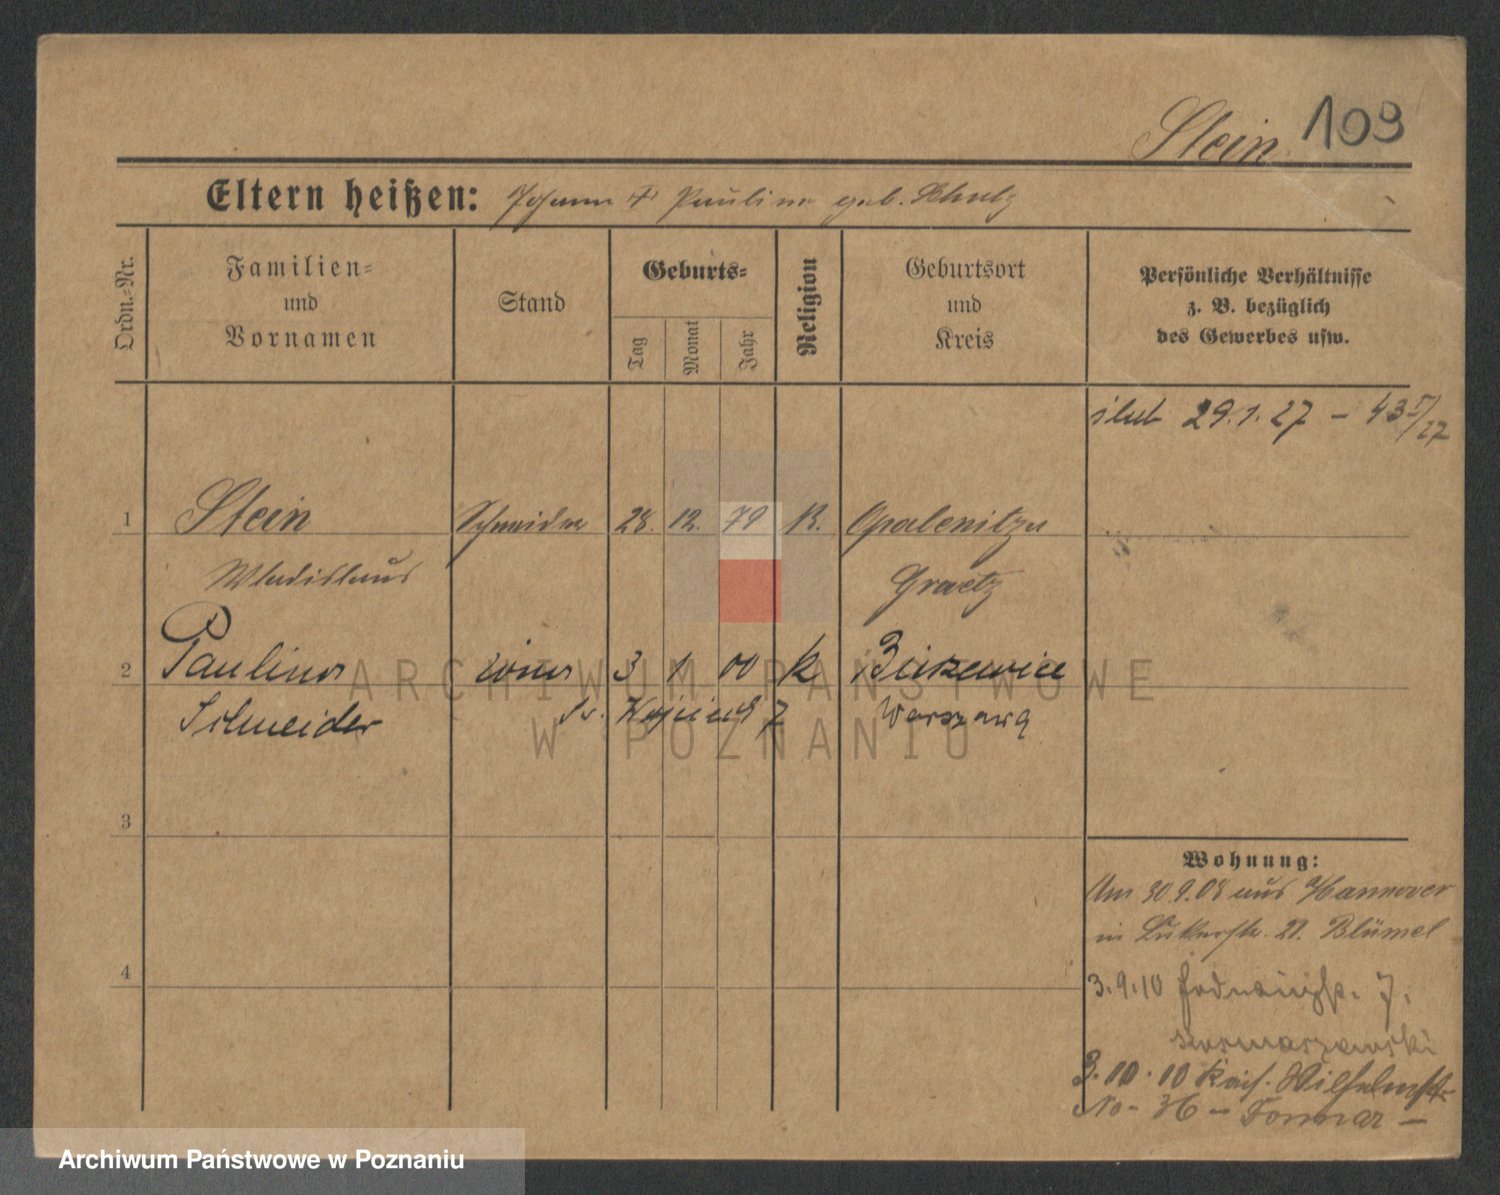 Stein 109
Eltern heißen: Johann + Pauline geb. Schulz
Ordn.-Nr.
Familien-
und
Vornamen
Stand
Geburts-
Tag
Monat
Jahr
Religion
Geburtsort
und
Kreis
Persönliche Verhältnisse
z. B. bezüglich
des Gewerbes usw.
ślub 29.1.27 - 43
1 Stein Schneider 28. 12. 79 K. Opalenitza
Wladislaus Graetz
2 Paulina żona 3 1 00 K
Schneider Warszawa
3
4
Wohnung:
Am 30.9.08 aus Hannover
in 21. Blümel
3.9.10 7.
3.10.10 Wilhelmstr
No- 36 -
ARCHIWUM PAŃSTWOWE
W POZNANIU
Archiwum Państwowe w Poznaniu